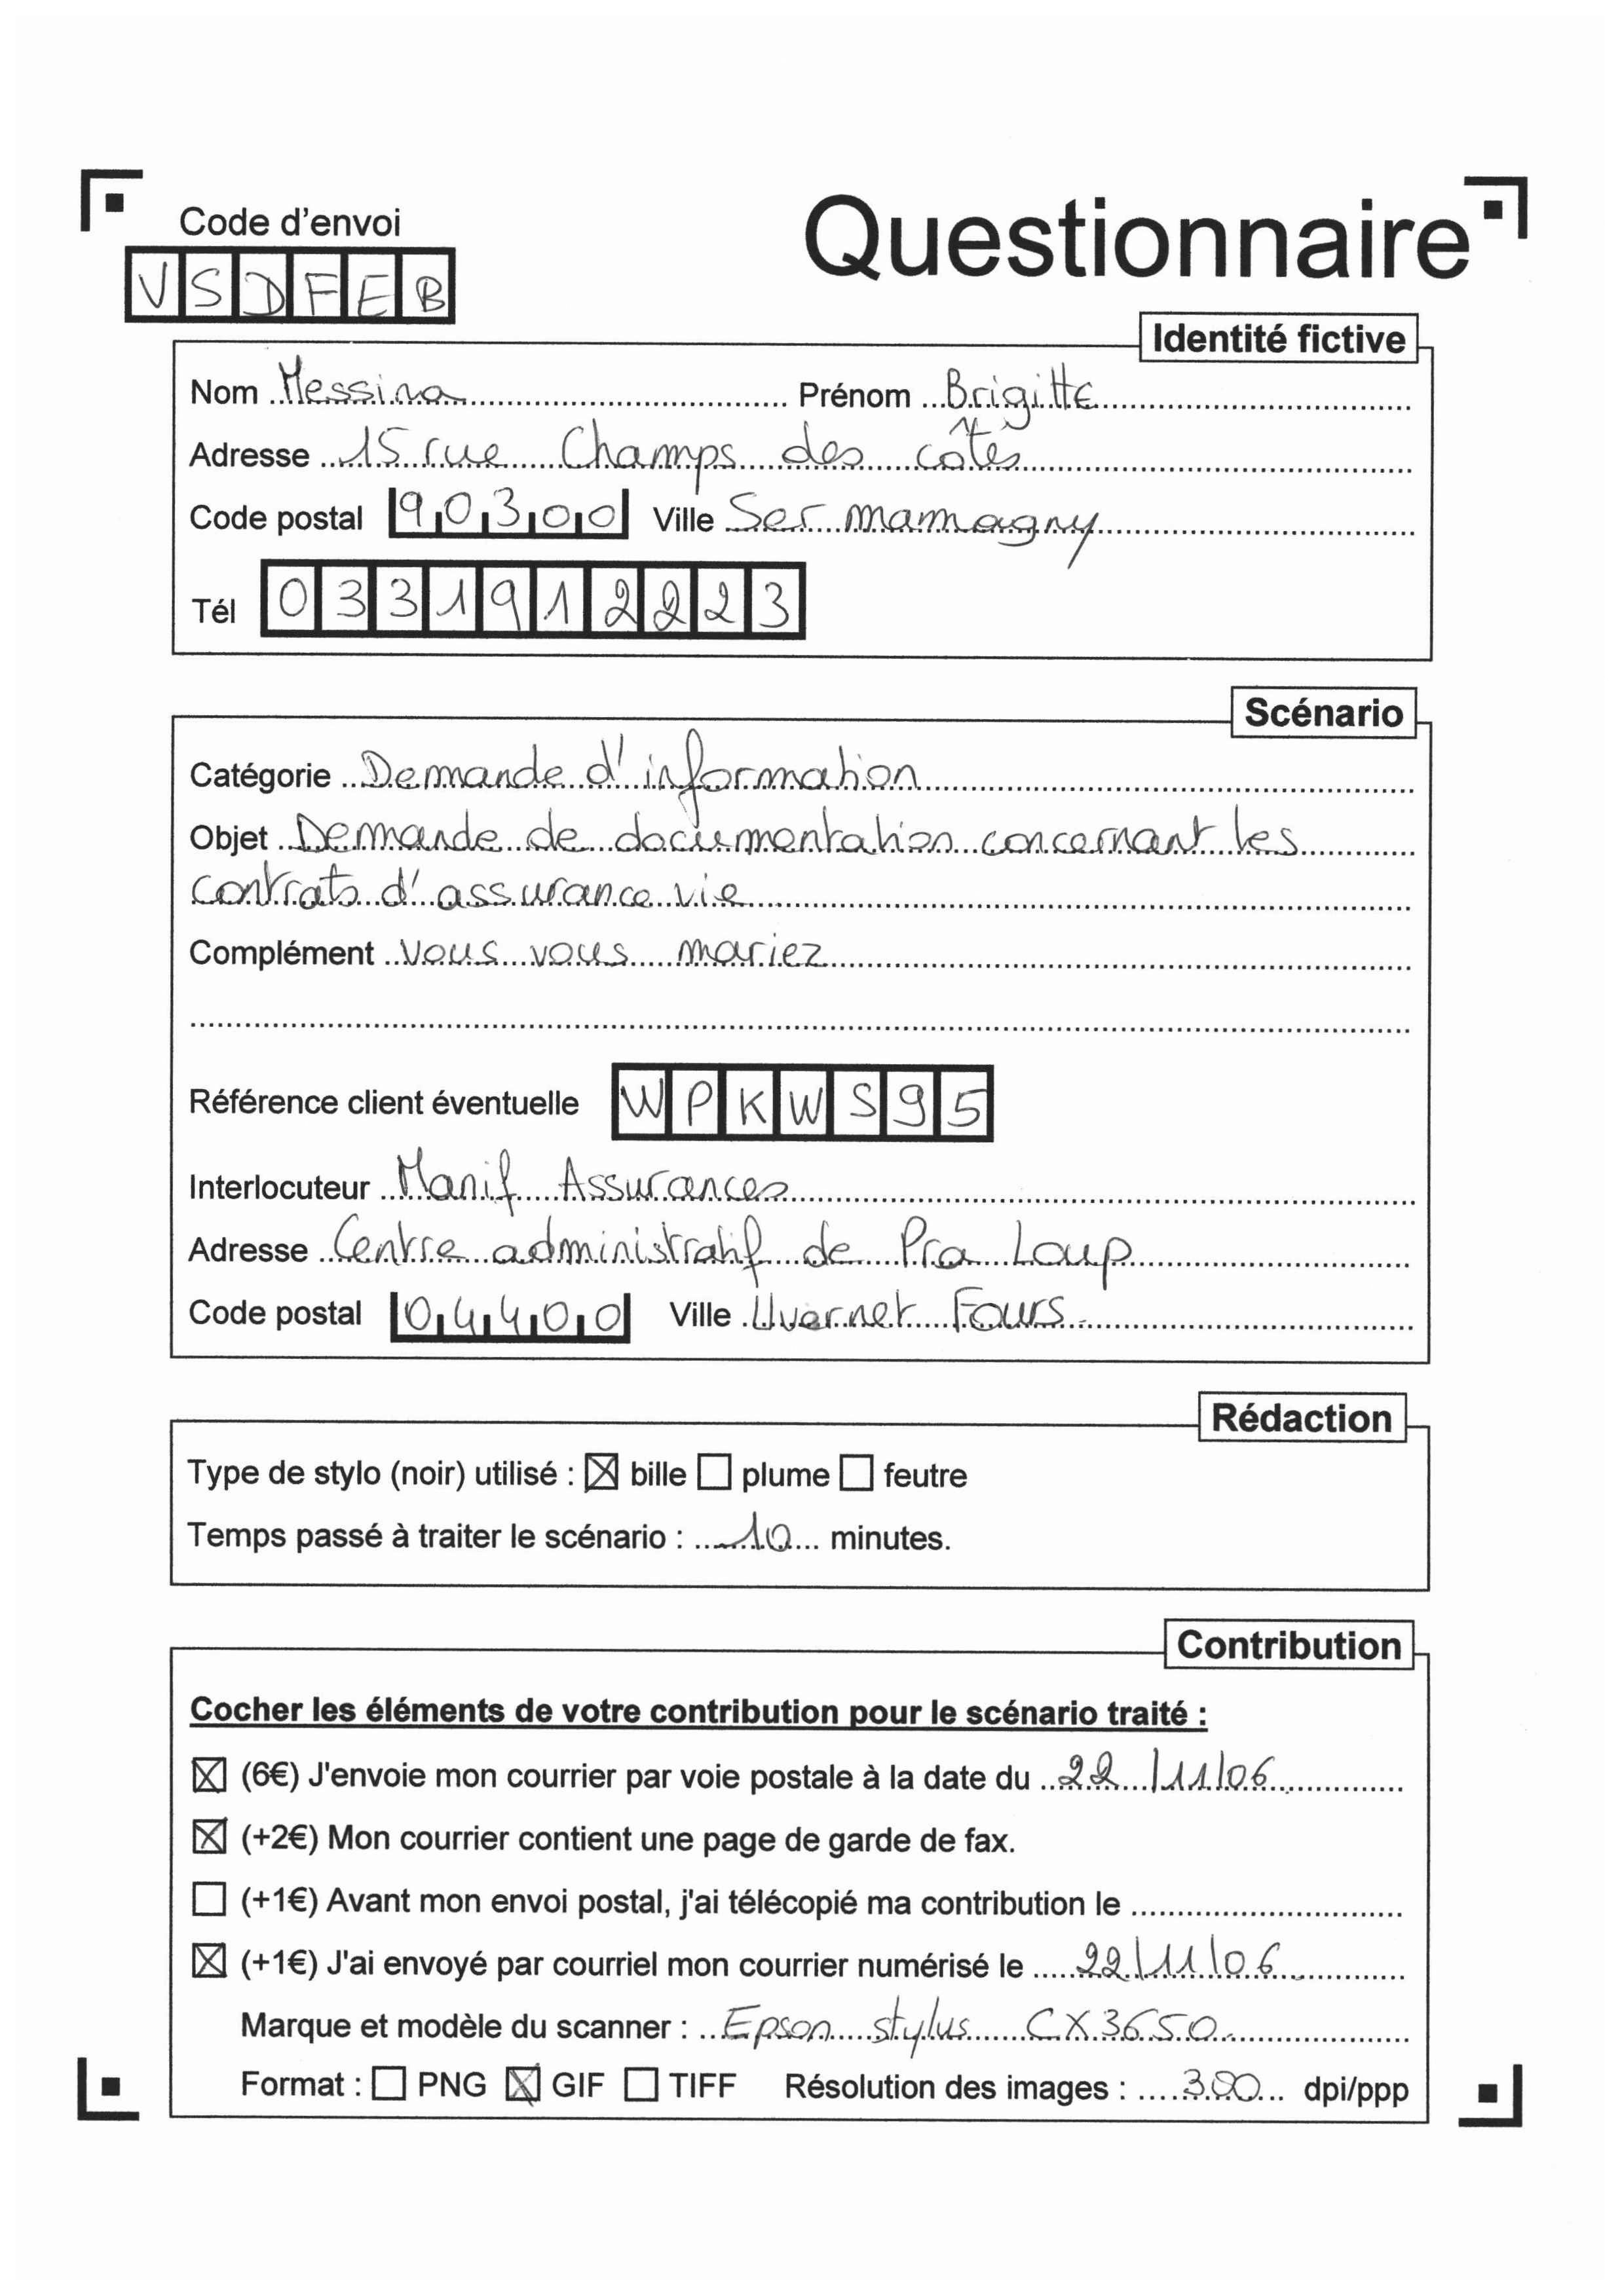 Code d'envoi
Questionnaire
VSDFEB
Identité fictive
Nom Messina Prénom Brigitte
Adresse 15 rue Champs des côtes
Code postal 90300 Ville Sermamagny
Tél 0331912223
Scénario
Catégorie Demande d'information
Objet Demande de documentation concernant les
contrats d'assurance vie
Complément Vous vous mariez
Référence client éventuelle WPKWS95
Interlocuteur Manif Assurances
Adresse Centre administratif de Pra Loup
Code postal 04400 Ville Uvernet Fours
Rédaction
Type de stylo (noir) utilisé : ☒ bille ☐ plume ☐ feutre
Temps passé à traiter le scénario : 10 minutes.
Contribution
Cocher les éléments de votre contribution pour le scénario traité :
☒ (6€) J'envoie mon courrier par voie postale à la date du 22/11/06
☒ (+2€) Mon courrier contient une page de garde de fax.
☐ (+1€) Avant mon envoi postal, j'ai télécopié ma contribution le
☒ (+1€) J'ai envoyé par courriel mon courrier numérisé le 22/11/06
Marque et modèle du scanner : Epson stylus CX3650
Format : ☐ PNG ☒ GIF ☐ TIFF Résolution des images : 300 dpi/ppp